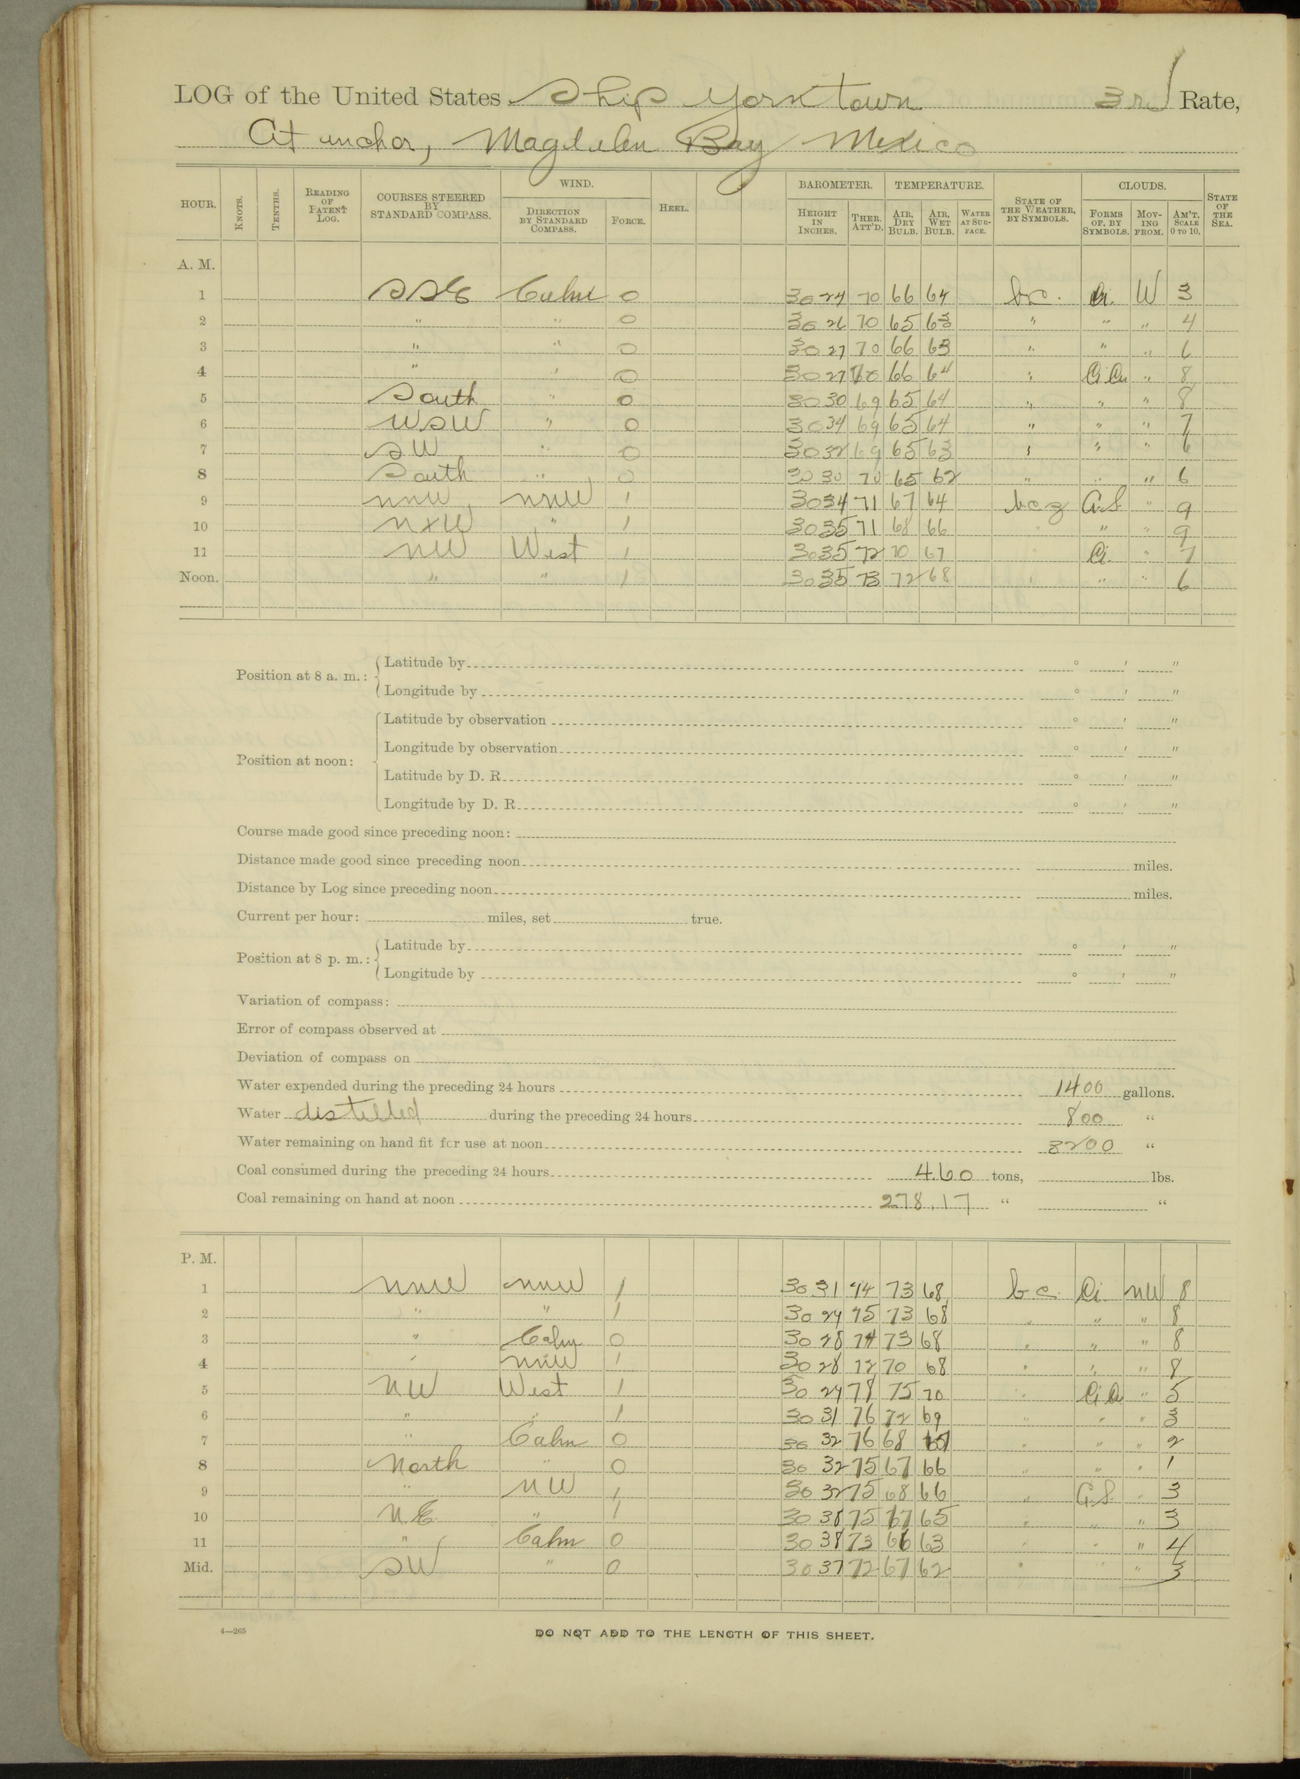 LOG of the United States Ship Yorktown 3rd Rate,
At anchor, Magdalen Bay Mexico
HOUR. KNOTS. TENTHS. READING OF PATENT LOG. COURSES STEERED BY STANDARD COMPASS. WIND. DIRECTION BY STANDARD COMPASS. FORCE. HEEL. BAROMETER. HEIGHT IN INCHES. THER. ATT'D. TEMPERATURE. AIR, DRY BULB. AIR, WET BULB. WATER AT SURFACE. STATE OF THE WEATHER, BY SYMBOLS. CLOUDS. FORMS OF, BY SYMBOLS. MOVING FROM. AM'T. SCALE 0 TO 10. STATE OF THE SEA.
A. M.
1 SSE Calm 0 30 24 70 66 64 b.c. Ci. W 3
2 " " 0 30 26 70 65 63 " " " 4
3 " " 0 30 27 70 66 63 " " " 6
4 " " 0 30 27 70 66 64 " Ci Cu " 8
5 South " 0 30 30 69 65 64 " " " 8
6 WSW " 0 30 34 69 65 64 " " " 7
7 SW " 0 30 32 69 65 63 " " " 6
8 South " 0 30 30 70 65 62 " " " 6
9 NNW NNW 1 30 34 71 67 64 b.c.z C.S. " 9
10 NxW " 1 30 35 71 68 66 " " 9
11 NW West 1 30 35 72 70 67 Ci. " 7
Noon. " " 1 30 35 73 72 68 " " 6
Position at 8 a. m.: Latitude by ° ′ ″
Longitude by ° ′ ″
Position at noon: Latitude by observation ° ′ ″
Longitude by observation ° ′ ″
Latitude by D. R. ° ′ ″
Longitude by D. R. ° ′ ″
Course made good since preceding noon:
Distance made good since preceding noon miles.
Distance by Log since preceding noon miles.
Current per hour: miles, set true.
Position at 8 p. m.: Latitude by ° ′ ″
Longitude by ° ′ ″
Variation of compass:
Error of compass observed at
Deviation of compass on
Water expended during the preceding 24 hours 1400 gallons.
Water distilled during the preceding 24 hours 800 "
Water remaining on hand fit for use at noon 8200 "
Coal consumed during the preceding 24 hours 4.60 tons, lbs.
Coal remaining on hand at noon 278.17 " "
P. M.
1 NNW NNW 1 30 31 74 73 68 b c Ci. NW 8
2 " " 1 30 29 75 73 68 " " " 8
3 " Calm 0 30 28 74 73 68 " " " 8
4 " NNW 1 30 28 72 70 68 " " " 8
5 NW West 1 30 29 78 75 70 " Ci Cu " 5
6 " " 1 30 31 76 72 69 " " " 3
7 " Calm 0 30 32 76 68 67 " " " 2
8 North " 0 30 32 75 67 66 " " " 1
9 " NW 1 30 32 75 68 66 " C.S. " 3
10 N.E. " 1 30 38 75 67 65 " " " 3
11 " Calm 0 30 38 73 66 63 " " " 4
Mid. SW " 0 30 37 72 67 62 " " " 3
4—265
DO NOT ADD TO THE LENGTH OF THIS SHEET.